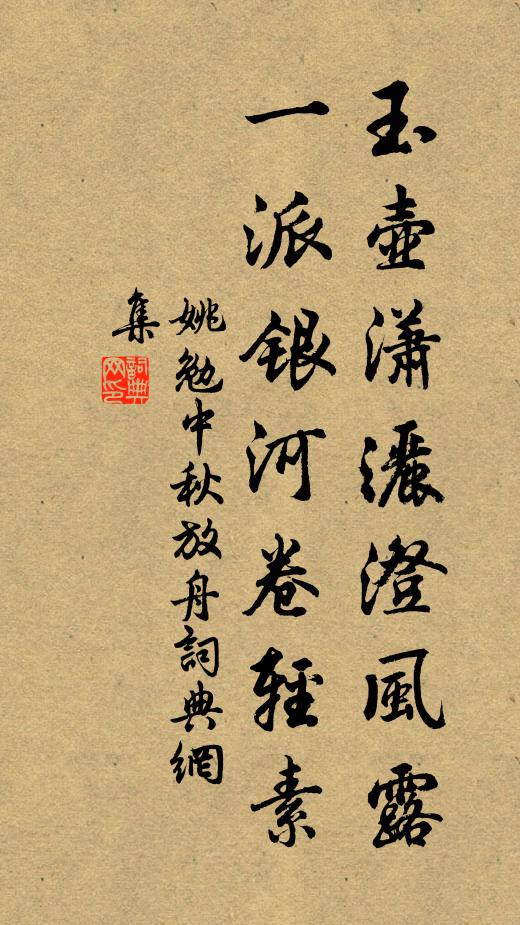 玉壺瀟灑澄風露
一派銀河卷輕素
姚勉中秋放舟詞典網
集
詞典網印